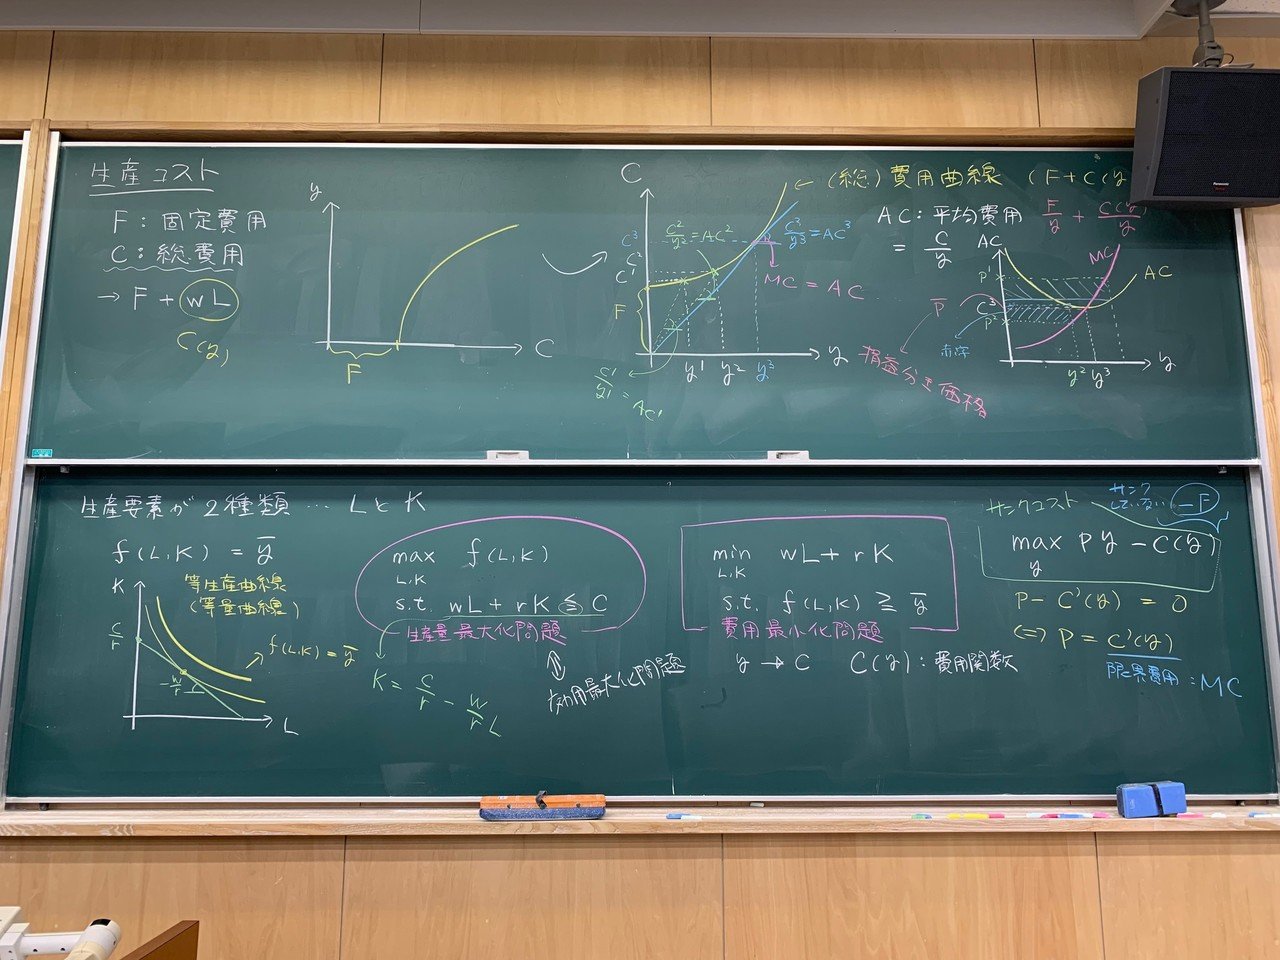 生産コスト
F：固定費用
C：総費用
→ F + wL
C(y)
y
C
F
C
(総)費用曲線 (F+C(y
C³
C²
C¹
F
C²/y² = AC²
C³/y³ = AC³
MC = AC
y¹ y² y³
y
C¹/y¹ = AC¹
AC：平均費用 F/y + C(y)/y
= C/y
AC
MC
AC
P¹
P̄
C³
P²
赤字
損益分岐価格
y² y³
y
生産要素が2種類 … LとK
f(L,K) = ȳ
K
等生産曲線
(等量曲線)
C/r
f(L,K) = ȳ
-w/r
L
max f(L,K)
L,K
s.t. wL + rK ≦ C
生産量最大化問題
K = C/r - w/r L
効用最大化問題
min wL + rK
L,K
s.t. f(L,K) ≧ ȳ
費用最小化問題
y → C C(y)：費用関数
サンクコスト
サンク
していない -F
max Py - C(y)
y
P - C'(y) = 0
⇔ P = C'(y)
限界費用：MC
Panasonic